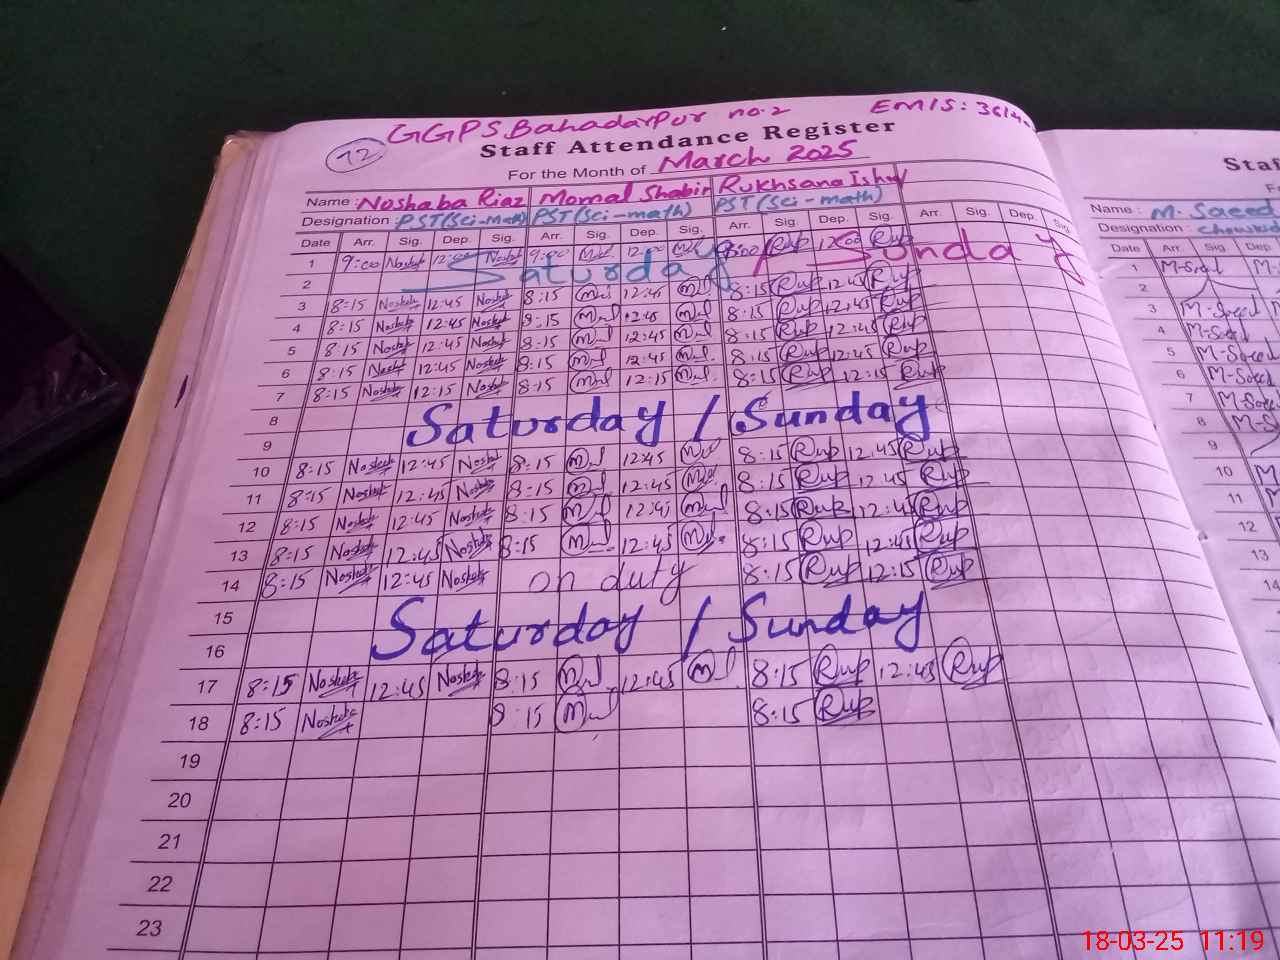 GGPS Bahadarpur no.2 EMIS: 3614
12 Staff Attendance Register
For the Month of March 2025
Name: Noshaba Riaz Momal Shabir Rukhsana
Designation: PST(Sci-math) PST(Sci-math) PST(Sci-math)
Date Arr. Sig. Dep. Sig. Arr. Sig. Dep. Sig. Arr. Sig. Dep. Sig. Arr. Sig. Dep. Sig.
1 9:00 Noshab 12:00 Noshab 9:00 12:00 9:00 Rup 12:00 Rup
2 Saturday / Sunday
3 8:15 Noshab 12:45 Noshab 8:15 12:45 8:15 Rup 12:45 Rup
4 8:15 Noshab 12:45 Noshab 8:15 12:45 8:15 Rup 12:45 Rup
5 8:15 Noshab 12:45 Noshab 8:15 12:45 8:15 Rup 12:45 Rup
6 8:15 Noshab 12:45 Noshab 8:15 12:45 8:15 Rup 12:45 Rup
7 8:15 Noshab 12:15 Noshab 8:15 12:15 8:15 Rup 12:15 Rup
8 Saturday / Sunday
9
10 8:15 Noshab 12:45 Noshab 8:15 12:45 8:15 Rup 12:45 Rup
11 8:15 Noshab 12:45 Noshab 8:15 12:45 8:15 Rup 12:45 Rup
12 8:15 Noshab 12:45 Noshab 8:15 12:45 8:15 Rup 12:45 Rup
13 8:15 Noshab 12:45 Noshab 8:15 12:45 8:15 Rup 12:45 Rup
14 8:15 Noshab 12:45 Noshab on duty 8:15 Rup 12:15 Rup
15 Saturday / Sunday
16
17 8:15 Noshab 12:45 Noshab 8:15 12:45 8:15 Rup 12:45 Rup
18 8:15 Noshab 8:15 8:15 Rup
19
20
21
22
23
Staf
Name: M. Saeed
Designation: chowkid
Date Arr. Sig. Dep.
1 M-Saeed M-
2
3 M-Saeed
4 M-Saeed
5 M-Saeed
6 M-Saeed
7 M-Saee
8 M-S
9
10 M
11
12
13
14
18-03-25 11:19